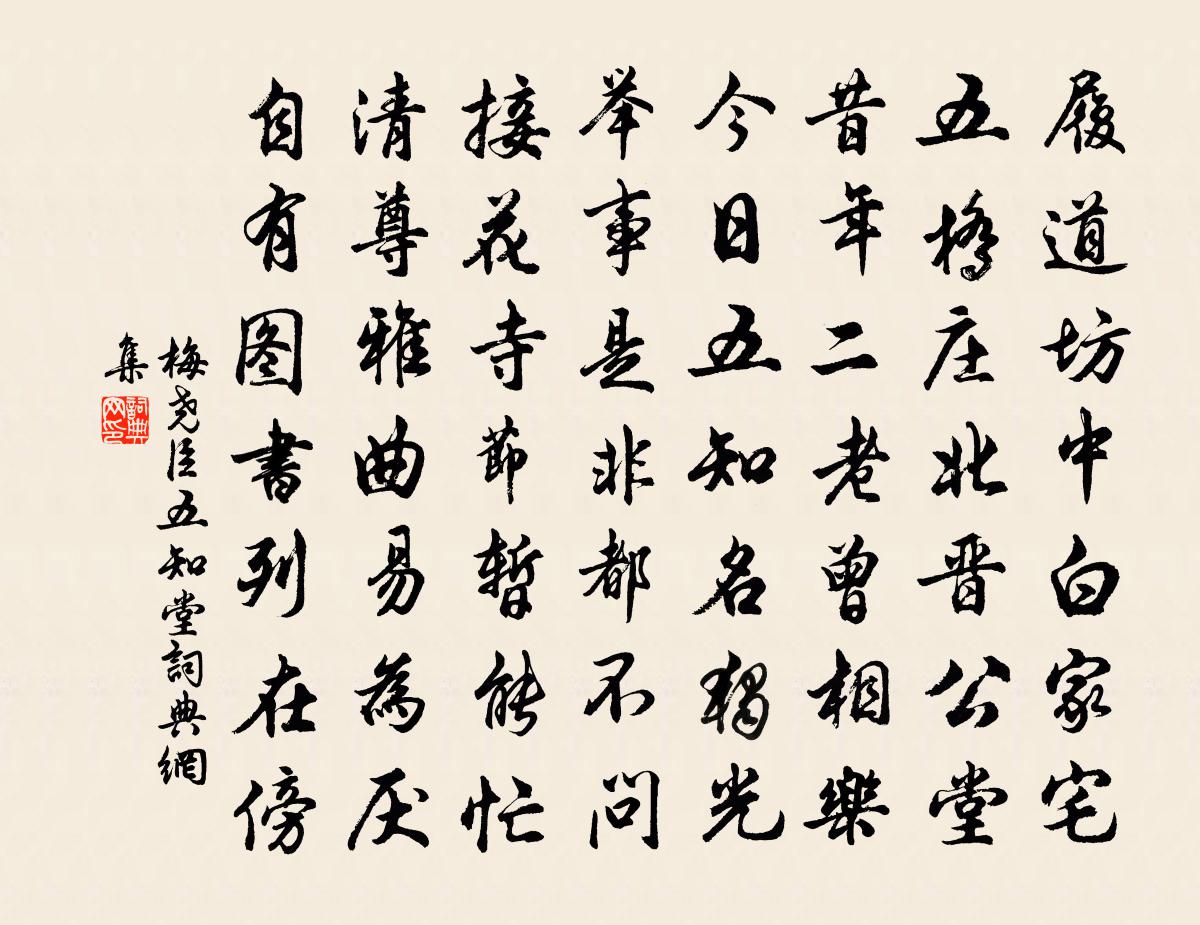 履道坊中白家宅
五橋庄北晋公堂
昔年二老曾相樂
今日五知名獨光
举事是非都不問
接花寺節暫能忙
清尊雅曲易為厌
自有图書列在傍
梅尧臣五知堂詞典網
集
詞典
网印